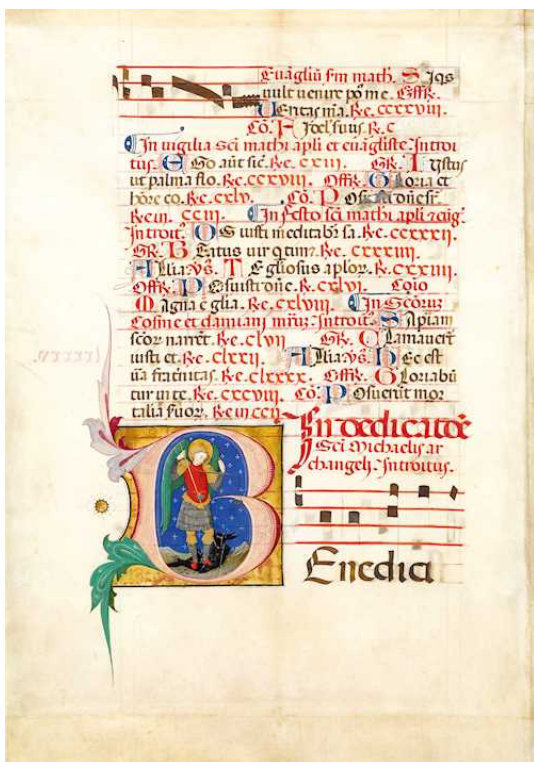 Euãgliũ fm math. Siqs
uult uenire p9 me. Offr.
Ueritas mã. Re. cxxxviii.
Cõ. H Ioel fuus. R. c
In uigilia Sci mathi apli et euãgliste. Introi
tus. Ego aũt sic. Re. cxiii. GR. Iustus
ut palma flo. Re. ccxviii. Offr. Gloria et
hõre co. Re. cxlv. Cõ. Posu
Re in. cciii. In festo sci mathi apli
Introit. Os iusti meditabr sa. Re.
GR. Beatus uir q tim. Re. cxxxiii.
Allia. vs. Te gliosus aplor. Re. cxxxiiii.
Offr. Posuisti dñe. Re. cxlvi. Cõio
Magna e glia. Re. cxlviii. In Scõruz
Cosme et damiani mr. Introit. Sapiam
scõr narret. Re. clvii GR. Clamauert
iusti et. Re. clxxii. Allia. vs. Hec est
ũa fraternitas. Re. clxxxx. Offr. Gloriabũ
tur in te. Re. cxcviii. Cõ. Posuerũt mor
talia suor. Re in ccii.
In dedicatõe
Sci Michaelis ar
changeli. Introitus.
Benedici